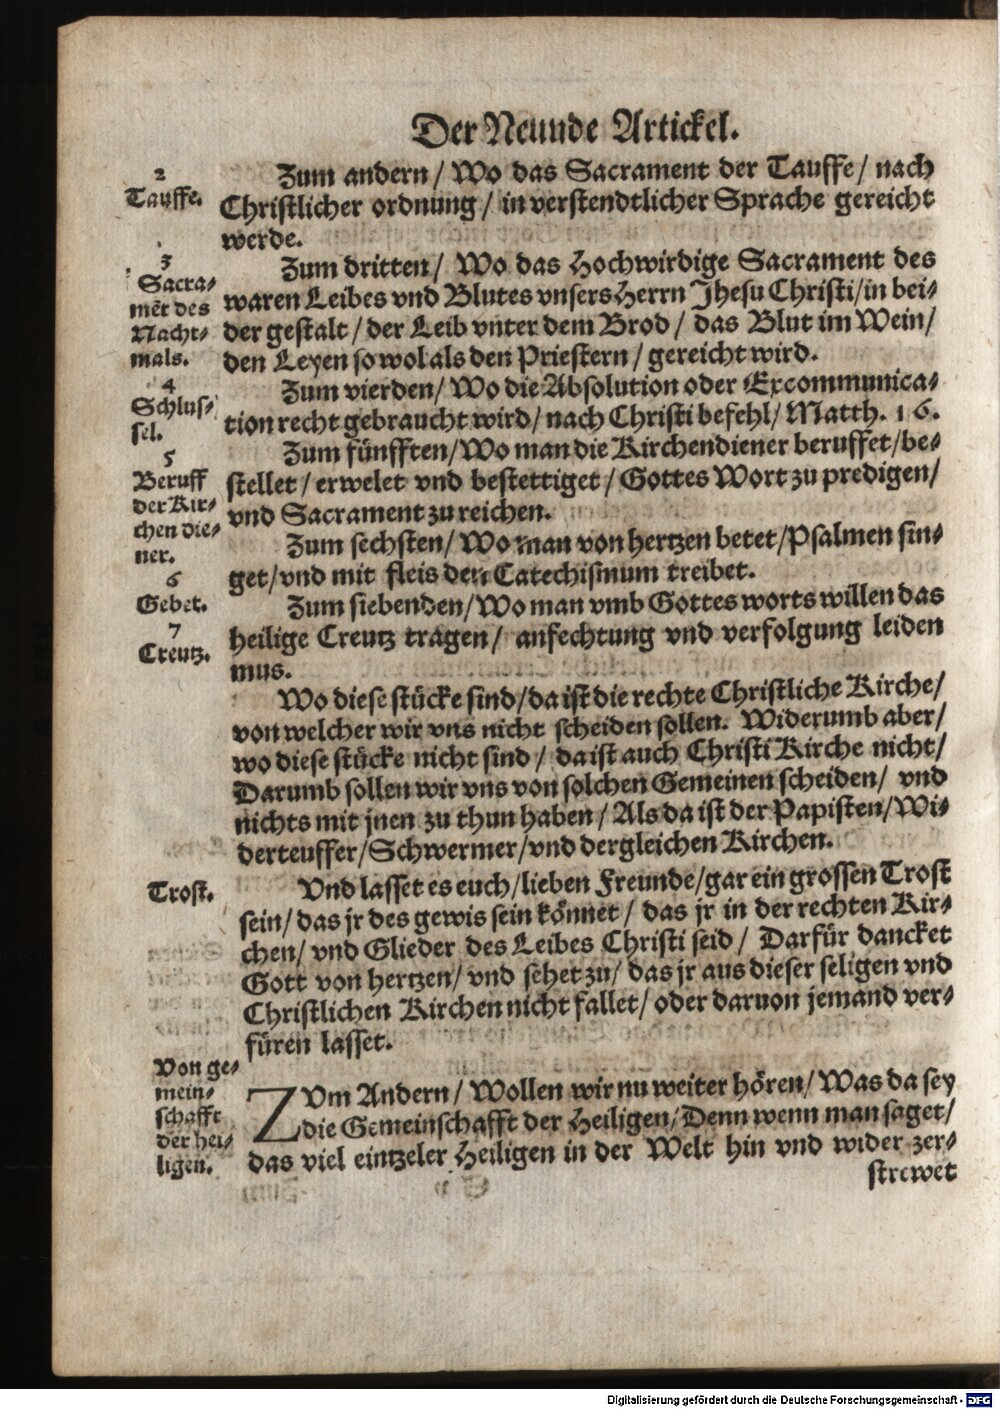 Der Neunde Artickel.
2
Tauffe.
Zum andern / Wo das Sacrament der Tauffe / nach
Christlicher ordnung / in verstendtlicher Sprache gereicht
werde.
3
Sacra-
mẽt des
Nacht-
mals.
Zum dritten / Wo das Hochwirdige Sacrament des
waren Leibes vnd Blutes vnsers Herrn Jhesu Christi / in bei-
der gestalt / der Leib vnter dem Brod / das Blut im Wein /
den Leyen so wol als den Priestern / gereicht wird.
4
Schlus-
sel.
Zum vierden / Wo die Absolution oder Excommunica-
tion recht gebraucht wird / nach Christi befehl / Matth. 16.
5
Beruff
der Kir-
chen die-
ner.
Zum fünfften / Wo man die Kirchendiener beruffet / be-
stellet / erwelet vnd bestettiget / Gottes Wort zu predigen /
vnd Sacrament zu reichen.
6
Gebet.
Zum sechsten / Wo man von hertzen betet / Psalmen sin-
get / vnd mit fleis den Catechismum treibet.
7
Creutz.
Zum siebenden / Wo man vmb Gottes worts willen das
heilige Creutz tragen / anfechtung vnd verfolgung leiden
mus.
Wo diese stücke sind / da ist die rechte Christliche Kirche /
von welcher wir vns nicht scheiden sollen. Widerumb aber /
wo diese stücke nicht sind / da ist auch Christi Kirche nicht /
Darumb sollen wir vns von solchen Gemeinen scheiden / vnd
nichts mit jnen zu thun haben / Als da ist der Papisten / Wi-
derteuffer / Schwermer / vnd dergleichen Kirchen.
Trost.
Vnd lasset es euch / lieben Freunde / gar ein grossen Trost
sein / das jr des gewis sein könnet / das jr in der rechten Kir-
chen / vnd Glieder des Leibes Christi seid / Darfür dancket
Gott von hertzen / vnd sehet zu / das jr aus dieser seligen vnd
Christlichen Kirchen nicht fallet / oder daruon jemand ver-
füren lasset.
Von ge-
mein-
schafft
der hei-
ligen.
ZVm Andern / Wollen wir nu weiter hören / Was da sey
die Gemeinschafft der Heiligen / Denn wenn man saget /
das viel eintzeler Heiligen in der Welt hin vnd wider zer-
strewet
Digitalisierung gefördert durch die Deutsche Forschungsgemeinschaft - DFG